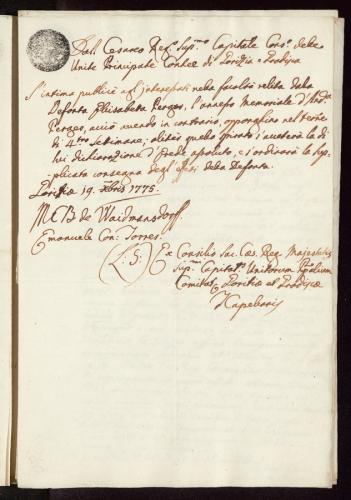 Dall Cesareo Reg.o Sup.mo Capitale Cons.o delle
Unite Principate Contee di Gorizia e Gradisca
S'intima publice agl'interessati nella facoltà relita dalla
Defonta Elisabetta Perger, l'annesso Memoriale d'And.a
Perger, acciò avendo in contrario, opponghino nel termine
di 4.tro Settimane; alias questo spirato s'accetterà la di
lui dichiarazione d'Erede assoluto, e s'ordinerà la sup-
plicata consegna degl'effetti della Defonta.
Gorizia 19. Xbris 1775.
M B de Waidmansdorff
Emanuele Con: Torres
(L: S:) Ex Consilio Sac. Cæs. Reg. Majestatis
Sup.mi Capital.is Unitorum Ppalium
Comitat. Goritiæ et Gradiscæ